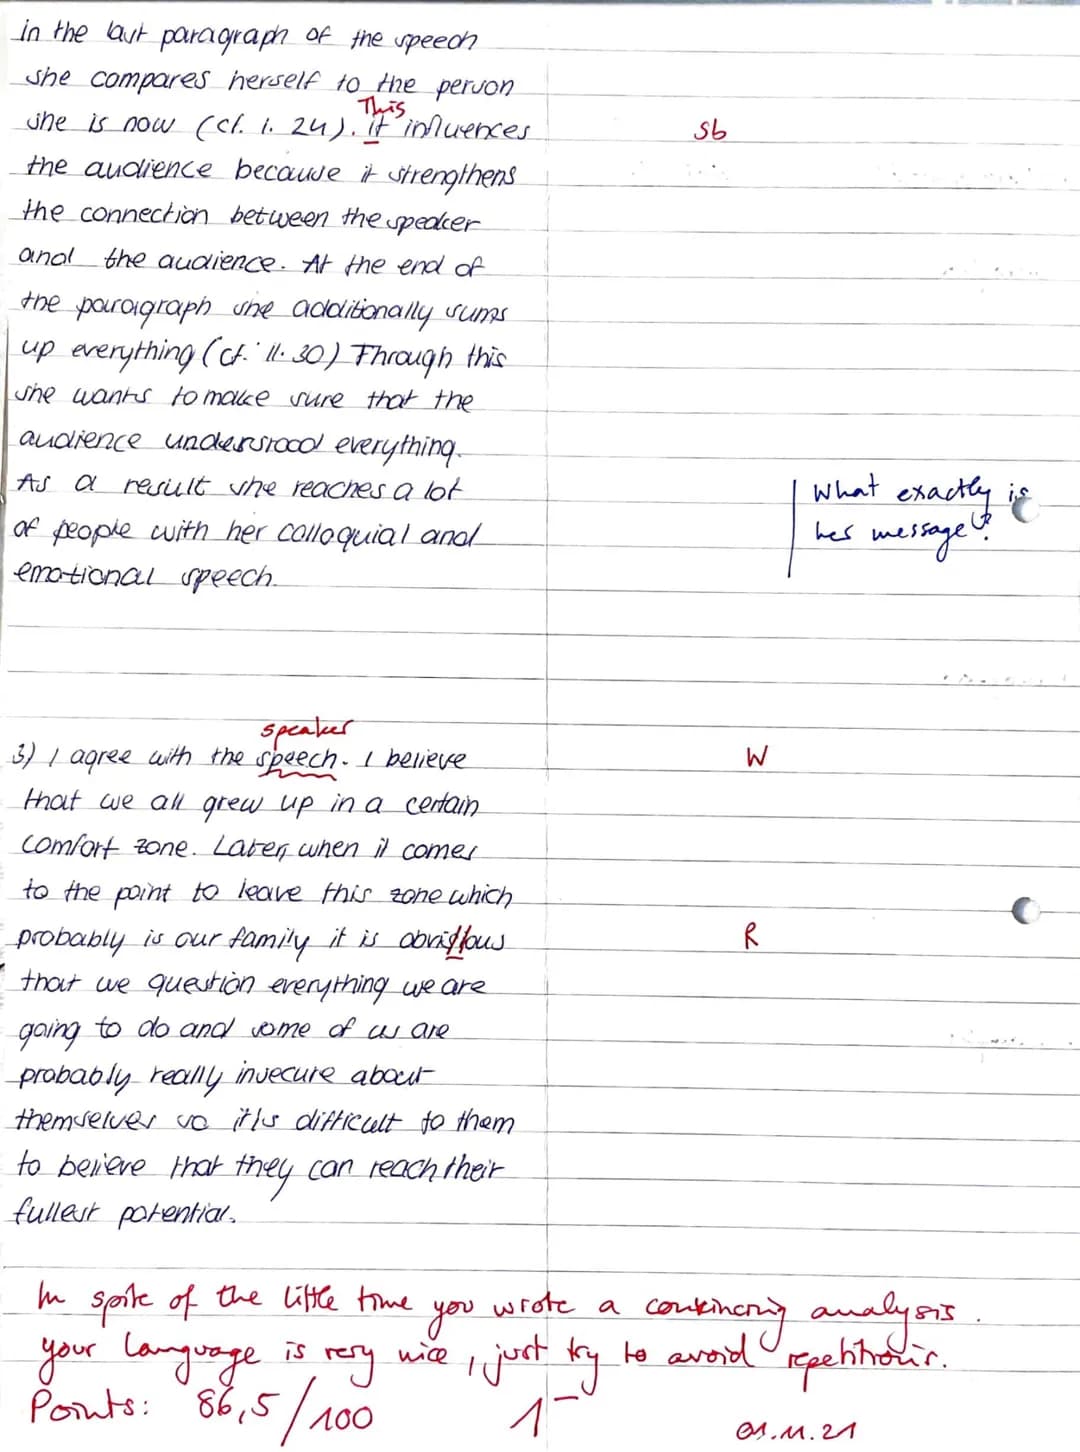 in the last paragraph of the speech
she compares herself to the person
This
she is now (cf. l. 24). it influences
sb
the audience because it strengthens
the connection between the speaker
and the audience. At the end of
the paragraph she additionally sums
up everything (cf. ll. 30) Through this
she wants to make sure that the
audience understood everything.
As a result she reaches a lot
of people with her colloquial and
emotional speech.
What exactly is
her message?
speaker
3) I agree with the speech. I believe
W
that we all grew up in a certain
comfort zone. Later, when it comes
to the point to leave this zone which
probably is our family it is obvious
R
that we question everything we are
going to do and some of us are
probably really insecure about
themselves so it is difficult to them
to believe that they can reach their
fullest potential.
In spite of the little time you wrote a convincing analysis.
your language is very nice, just try to avoid repetitions.
Points: 86,5/100 1-
01.11.21